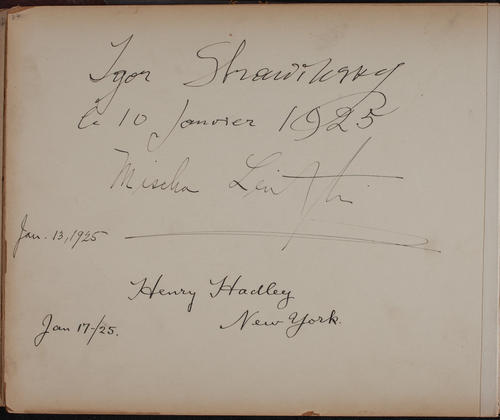 Igor Strawinsky
le 10 Janvier 1925
Mischa Levitzki
Jan. 13, 1925
Henry Hadley
New York.
Jan 17-/25.